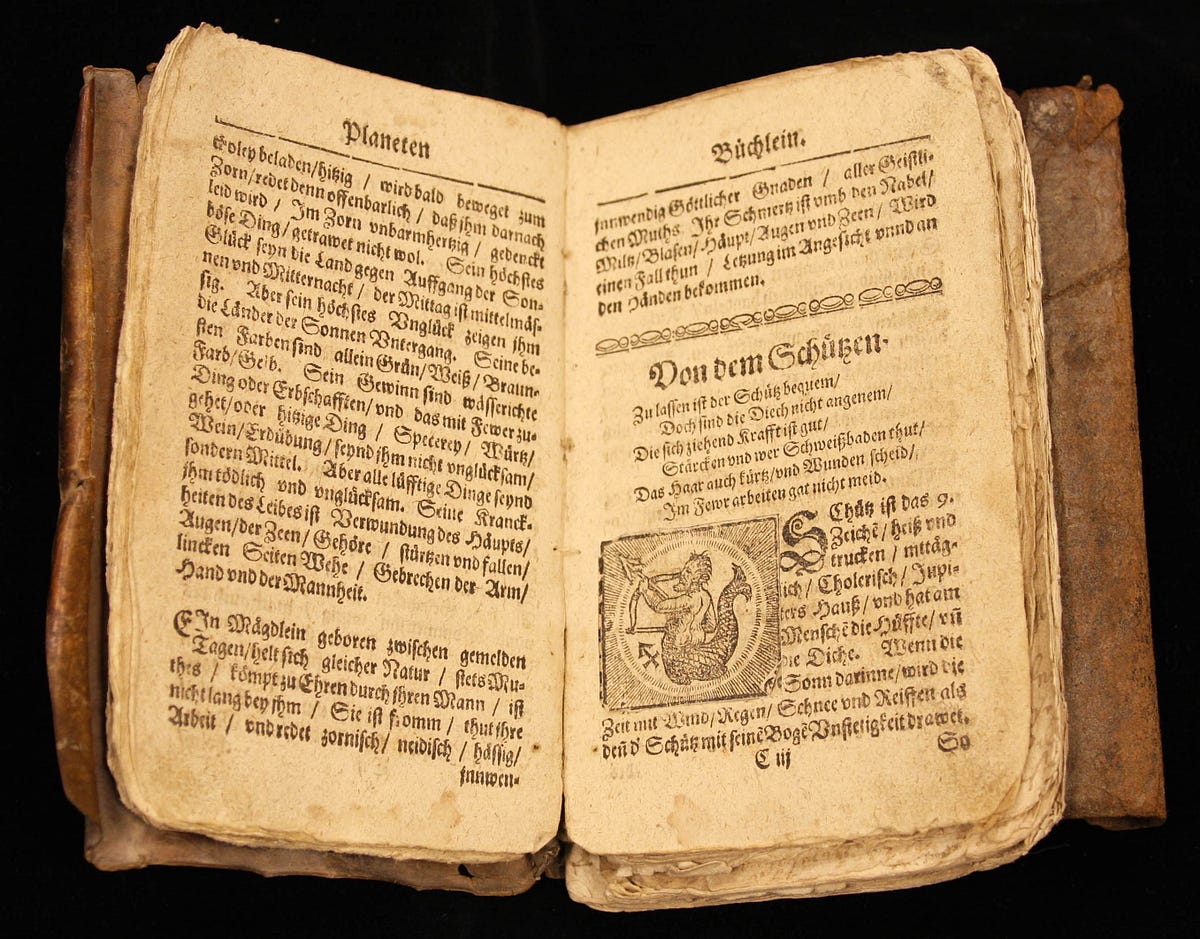 Planeten
Coley beladen/hitzig / wird bald beweget zum
Zorn/redet denn offenbarlich / daß jhm darnach
leid wird / Im Zorn vnbarmhertzig / gedenckt
böse Ding/getrawet nicht wol. Sein höchstes
Glück seyn die Land gegen Auffgang der Son-
nen vnd Mitternacht / der Mittag ist mittelmäs-
sig. Aber sein höchstes Vnglück zeigen jhm
die Länder der Sonnen Vntergang. Seine be-
sten Farben sind allein Grün/Weiß/Braun-
Farb/Gelb. Sein Gewinn sind wässerichte
Ding oder Erbschafften/vnd das mit Fewer zu-
gehet/oder hitzige Ding / Specerey / Würtz/
Wein/Erdübung/seynd jhm nicht vnglücksam/
sondern Mittel. Aber alle lüfftige Dinge seynd
jhm tödlich vnd vnglücksam. Seine Kranck-
heiten des Leibes ist Verwundung des Häupts/
Augen/der Zeen/Gehöre / stürtzen vnd fallen/
lincken Seiten Wehe / Gebrechen der Arm/
Hand vnd der Mannheit.
EIn Mägdlein geboren zwischen gemelden
Tagen/helt sich gleicher Natur / stets Mu-
thes / kömpt zu Ehren durch jhren Mann / ist
nicht lang bey jhm / Sie ist from / thut jhre
Arbeit / vnd redet zornisch/ neidisch / hässig/
jnnwen-
Büchlein.
jnnwendig Göttlicher Gnaden / aller Geistli-
chen Muths. Ihr Schmertz ist vmb den Nabel/
Miltz/Blasen/Häupt/Augen vnd Zeen/ Wird
einen Fall thun / Letzung im Angesicht vnnd an
den Händen bekommen.
Von dem Schützen.
Zu lassen ist der Schütz bequem/
Doch sind die Diech nicht angenem/
Die sich ziehend Krafft ist gut/
Stärcken vnd wer Schweißbaden thut/
Das Haar auch kürtz/vnd Wunden scheid/
Im Fewr arbeiten gar nicht meid.
SChütz ist das 9.
Zeichē/ heiß vnd
trucken / mttäg-
lich / Cholerisch/ Jupi-
ters Hauß/ vnd hat am
Menschē die Hüffte/ vñ
die Diche. Wenn die
Sonn darinne/wird die
Zeit mit Wind/Regen/ Schnee vnd Reiffen als
deñ d' Schütz mit seinē Bogē Vnstetigkeit drawet.
C iij
So